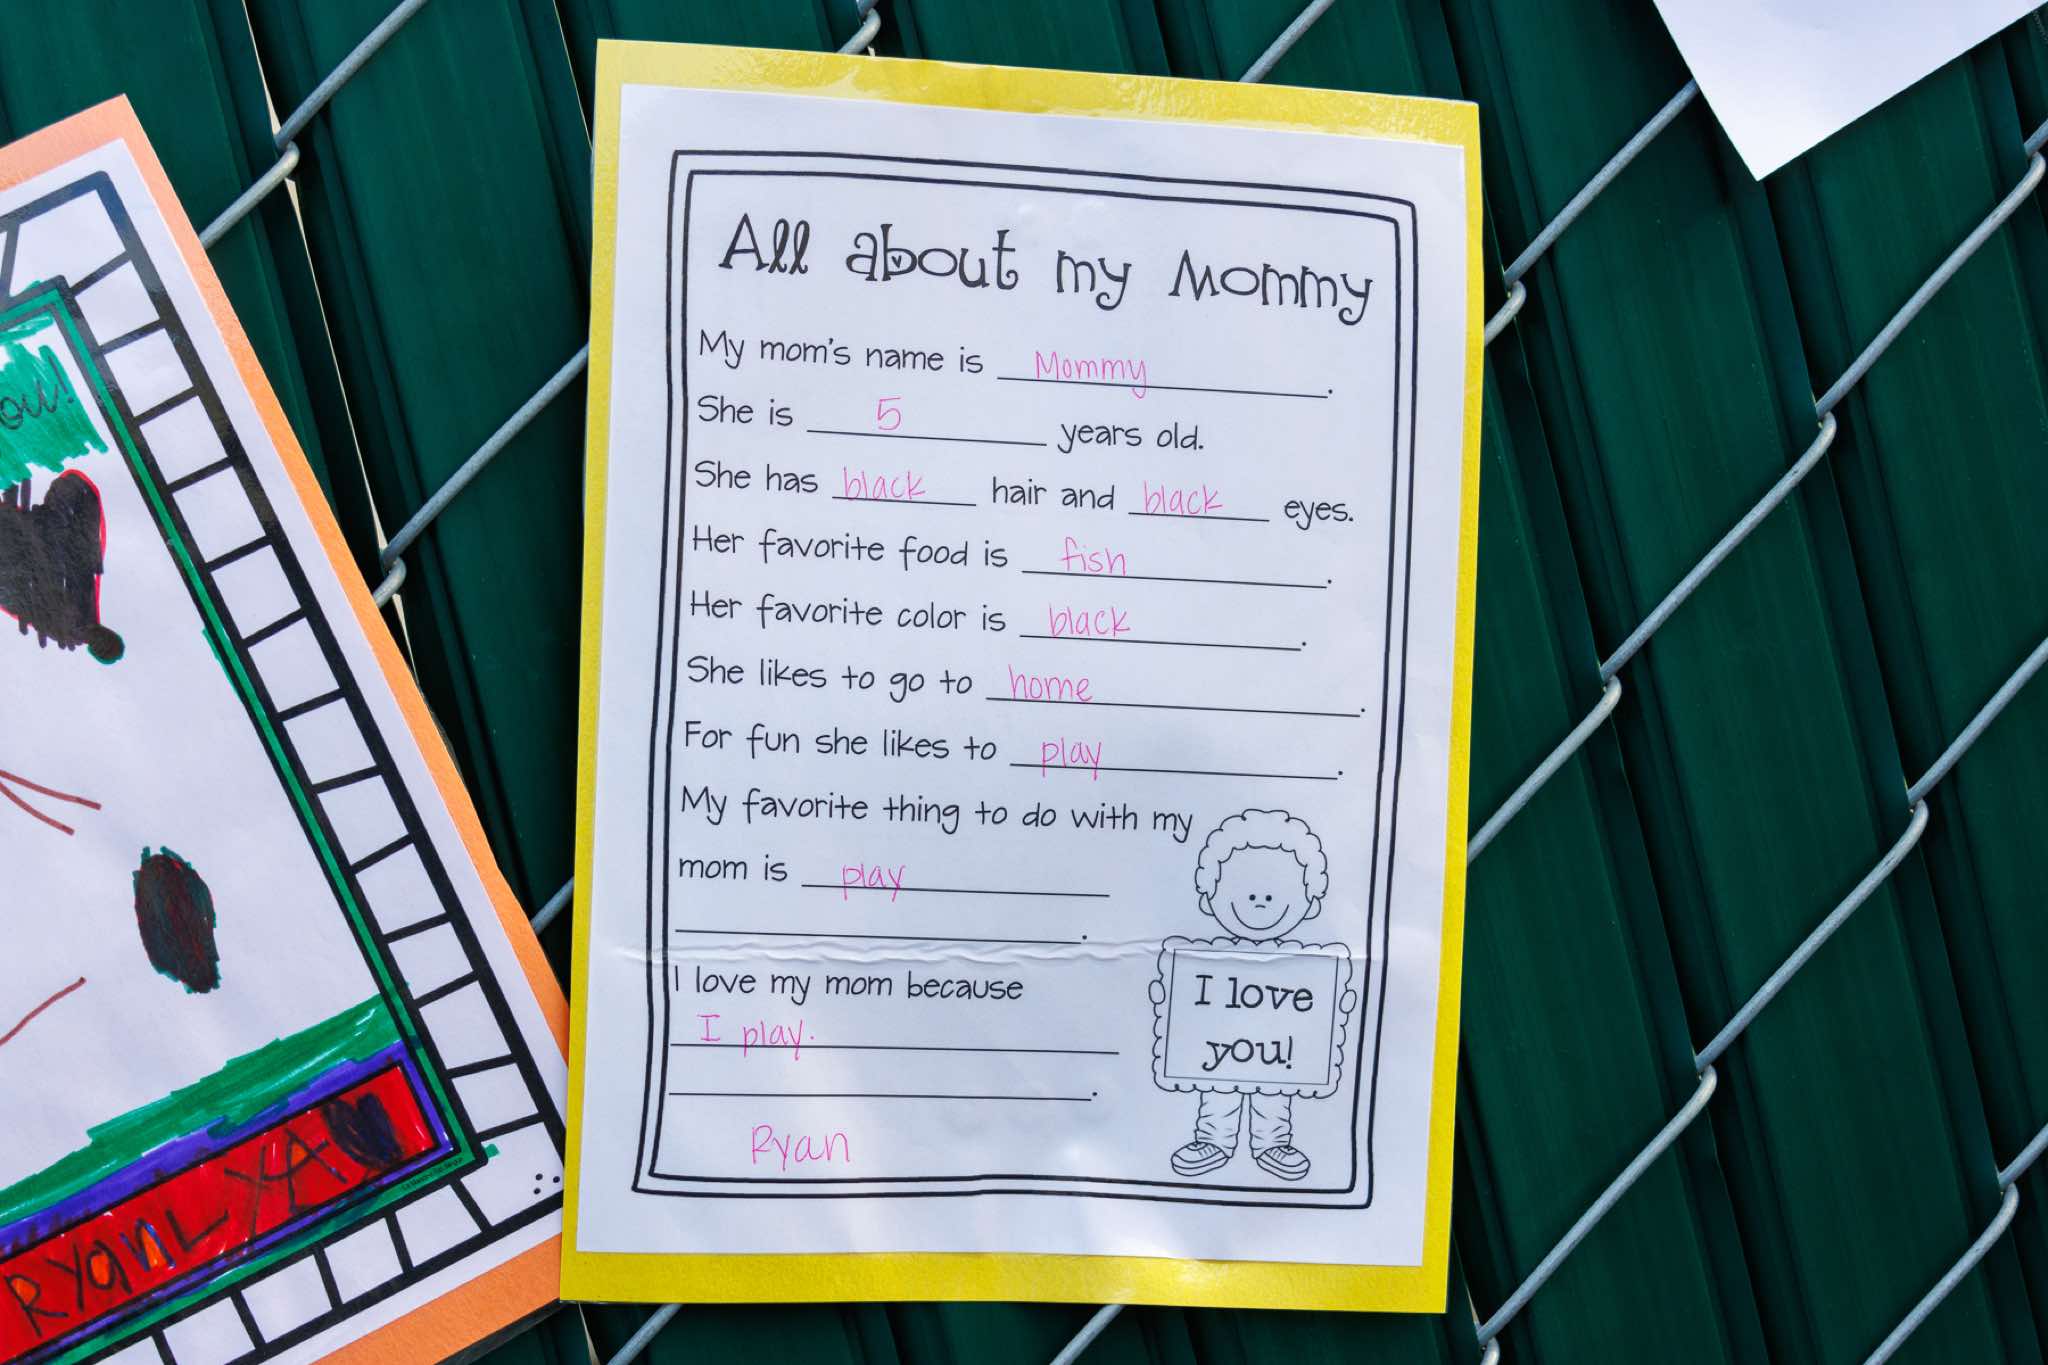 All about my Mommy
My mom's name is Mommy.
She is 5 years old.
She has black hair and black eyes.
Her favorite food is fish.
Her favorite color is black.
She likes to go to home.
For fun she likes to play.
My favorite thing to do with my
mom is play
.
I love my mom because
I play.
.
Ryan
I love
you!
ou!
RyanL